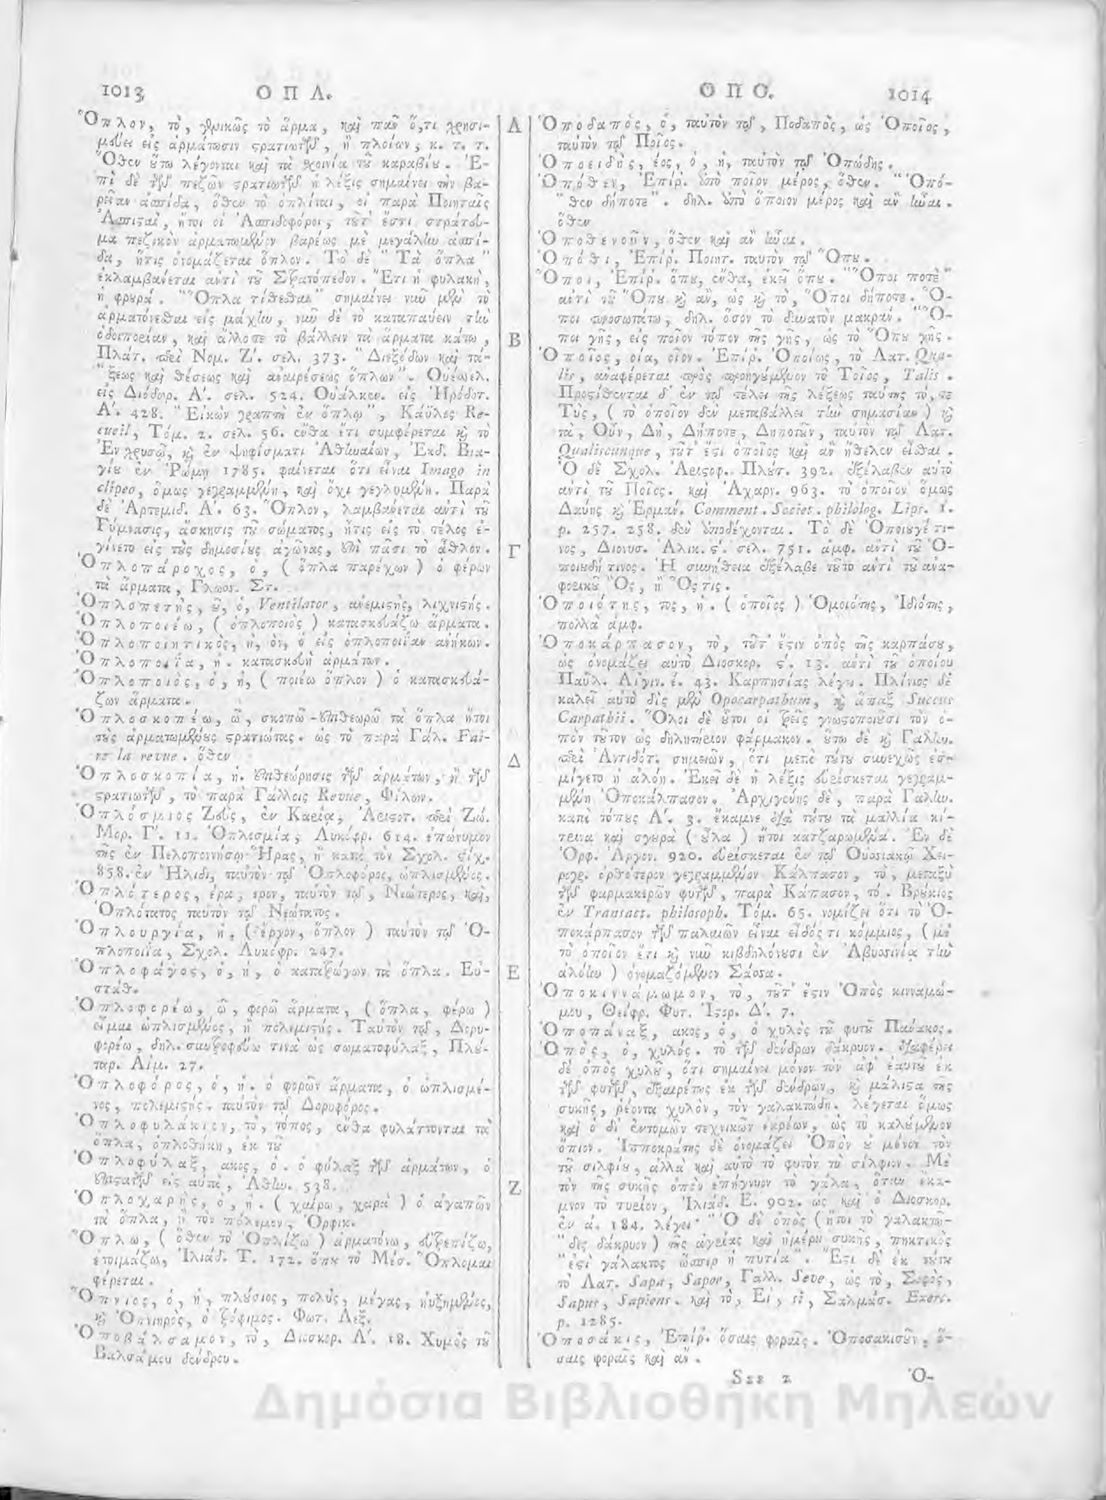 1013 ΟΠΛ.
Ὅπλον, τὸ, γενικῶς τὸ ἅρμα, καὶ πᾶν ὅ,τι χρησι-
μεύει εἰς ἁρμάτωσιν στρατιωτῶν, ἢ πλοίων, κ. τ. τ.
Ὅθεν οὕτω λέγονται καὶ τὰ σχοινία τοῦ καραβίου. Ἐ-
πὶ δὲ τῶν πεζῶν στρατιωτῶν ἡ λέξις σημαίνει τὴν βα-
ρεῖαν ἀσπίδα, ὅθεν τὸ ὁπλῖται, οἱ παρὰ Ποιηταῖς
Ἀσπισταί, ἤτοι οἱ Ἀσπιδοφόροι, τοῦτ' ἔστι στράτευ-
μα πεζικὸν ἁρματωμένον βαρέως μὲ μεγάλην ἀσπί-
δα, ἥτις ὀνομάζεται ὅπλον. Τὸ δὲ " Τὰ ὅπλα "
ἐκλαμβάνεται ἀντὶ τοῦ Στρατόπεδον. Ἔτι ἡ φυλακὴ,
ἡ φρουρά. " Ὅπλα τίθεσθαι " σημαίνει νῦν μὲν τὸ
ἁρματόνεσθαι εἰς μάχην, νῦν δὲ τὸ καταπαύειν τὴν
ὁδοιπορείαν, καὶ ἄλλοτε τὸ βάλλειν τὰ ἅρματα κάτω,
Πλάτ. περὶ Νομ. Ζ'. σελ. 373. " Διεξόδων καὶ τά-
" ξεως καὶ θέσεως καὶ ἀναιρέσεως ὅπλων ". Οὐέσσελ.
εἰς Διόδωρ. Α'. σελ. 524. Οὐάλκεν. εἰς Ἡρόδοτ.
Α'. 428. " Εἰκὼν γραπτὴ ἐν ὅπλῳ ", Καΰλες Re-
cueil, Τόμ. 2. σελ. 56. ἔνθα ἔτι συμφέρεται καὶ τὸ
Ἐν χρυσῷ, καὶ ἐν ψηφίσματι Ἀθηναίων, Ἐκδ. Βια-
γίου ἐν Ῥώμῃ 1785. φαίνεται ὅτι εἶναι Imago in
clipeo, ὅμως γεγραμμένη, καὶ ὄχι γεγλυμμένη. Παρὰ
δὲ Ἀρτεμιδ. Α'. 63. Ὅπλον, λαμβάνεται ἀντὶ τοῦ
Γύμνασις, ἄσκησις τοῦ σώματος, ἥτις εἰς τὸ τέλος ἐ-
γίνετο εἰς τοὺς δημοσίους ἀγῶνας, ἐπὶ πᾶσι τὸ ἆθλον.
Ὁπλοπάροχος, ὁ, ( ὅπλα παρέχων ) ὁ φέρων
τὰ ἅρματα, Γλωσσ. Στ.
Ὁπλοπετής, οῦ, ὁ, Ventilator, ἀνεμιστὴς, λιχνιστής.
Ὁπλοποιέω, ( ὁπλοποιὸς ) κατασκευάζω ἅρματα.
Ὁπλοποιητικός, ἡ, ὸν, ὁ εἰς ὁπλοποιΐαν ἀνήκων.
Ὁπλοποιΐα, ἡ. κατασκευὴ ἁρμάτων.
Ὁπλοποιός, ὁ, ἡ, ( ποιέω ὅπλον ) ὁ κατασκευά-
ζων ἅρματα.
Ὁπλοσκοπέω, ῶ, σκοπῶ - ἐπιθεωρῶ τὰ ὅπλα ἤτοι
τοὺς ἁρματωμένους στρατιώτας. ὡς τὸ παρὰ Γάλ. Fai-
re la revue. ὅθεν
Ὁπλοσκοπία, ἡ. ἐπιθεώρησις τῶν ἁρμάτων, ἢ τῶν
στρατιωτῶν, τὸ παρὰ Γάλλοις Revue, Φίλων.
Ὁπλόσμιος Ζεὺς, ἐν Καρίᾳ, Ἀριστοτ. περὶ Ζώ.
Μορ. Γ'. 11. Ὁπλοσμία, Λυκόφρ. 614. ἐπώνυμον
τῆς ἐν Πελοποννήσῳ Ἥρας, ἢ κατὰ τὸν Σχολ. στίχ.
858. ἐν Ἤλιδι, ταὐτὸν τῷ Ὁπλοφόρος, ὡπλισμένος.
Ὁπλότερος, έρα, ερον, ταὐτὸν τῷ, Νεώτερος, καὶ,
Ὁπλότατος ταὐτὸν τῷ Νεώτατος.
Ὁπλουργία, ἡ, ( ἔργον, ὅπλον ) ταὐτὸν τῷ Ὁ-
πλοποιΐα, Σχολ. Λυκόφρ. 247.
Ὁπλοφάγος, ὁ, ἡ, ὁ κατατρώγων τὰ ὅπλα. Εὐ-
σταθ.
Ὁπλοφορέω, ῶ, φορῶ ἅρματα, ( ὅπλα, φέρω )
εἶμαι ὡπλισμένος, ἢ πολεμιστής. Ταὐτὸν τῷ, Δορυ-
φορέω, δηλ. συντροφεύω τινὰ ὡς σωματοφύλαξ, Πλού-
ταρ. Αἰμ. 27.
Ὁπλοφόρος, ὁ, ἡ. ὁ φορῶν ἅρματα, ὁ ὡπλισμέ-
νος, πολεμιστής. ταὐτὸν τῷ Δορυφόρος.
Ὁπλοφυλάκιον, τὸ, τόπος, ἔνθα φυλάττονται τὰ
ὅπλα, ὁπλοθήκη, ἐκ τοῦ
Ὁπλοφύλαξ, ακος, ὁ. ὁ φύλαξ τῶν ἁρμάτων, ὁ
ἐπιστατῶν εἰς αὐτὰ, Ἀθήν. 538.
Ὁπλοχαρής, ὁ, ἡ. ( χαίρω, χαρὰ ) ὁ ἀγαπῶν
τὰ ὅπλα, ἢ τὸν πόλεμον, Ὀρφικ.
Ὅπλω, ( ὅθεν τὸ Ὁπλίζω ) ἁρματόνω, εὐτρεπίζω,
ἑτοιμάζω, Ἰλιάδ. Τ. 172. ὅπου τὸ Μέσ. Ὅπλομαι
φέρεται.
Ὄπνιος, ὁ, ἡ, πλούσιος, πολὺς, μέγας, ηὐξημένος,
καὶ Ὀπνιηρὸς, ὁ τρόφιμος. Φωτ. Λεξ.
Ὀποβάλσαμον, τὸ, Διοσκορ. Α'. 18. Χυμὸς τοῦ
Βαλσάμου δένδρου.
Α
Β
Γ
Δ
Ε
Ζ
ΟΠΟ. 1014
Ὁποδαπός, ὁ, ταὐτὸν τῷ, Ποδαπὸς, ὡς Ὁποῖος,
ταὐτὸν τῷ Ποῖος.
Ὀποειδής, έος, ὁ, ἡ, ταὐτὸν τῷ Ὀπώδης.
Ὁπόθεν, Ἐπίρ. ἀπὸ ποῖον μέρος, ὅθεν. " Ὁπό-
" θεν δήποτε ". δηλ. ἀπὸ ὅποιον μέρος καὶ ἂν ἦναι.
ὅθεν
Ὁποθενοῦν, ὅθεν καὶ ἂν ἦναι.
Ὁπόθι, Ἐπίρ. Ποιητ. ταὐτὸν τῷ Ὅπου.
Ὅποι, Ἐπίρ. ὅπου, ἔνθα, ἐκεῖ ὅπου. " Ὅποι ποτὲ "
ἀντὶ τοῦ Ὅπου καὶ ἂν, ὡς καὶ τὸ, Ὅποι δήποτε. Ὅ-
ποι προσωτάτω, δηλ. ὅσον τὸ δυνατὸν μακράν. " Ὅ-
ποι γῆς, εἰς ποῖον τόπον τῆς γῆς, ὡς τὸ Ὅπου γῆς.
Ὁποῖος, οία, οῖον. Ἐπίρ. Ὁποίως, τὸ Λατ. Qua-
lis, ἀναφέρεται πρὸς προηγούμενον τὸ Τοῖος, Talis.
Προστίθενται δ' ἐν τῷ τέλει τῆς λέξεως ταύτης τὸ, τε
Τὶς, ( τὸ ὁποῖον δὲν μεταβάλλει τὴν σημασίαν ) καὶ
τὰ, Οὖν, Δὴ, Δήποτε, Δηποτοῦν, ταὐτὸν τῷ Λατ.
Qualiscunque, τοῦτ' ἔστι ὁποῖος καὶ ἂν ἤθελεν εἶσθαι.
Ὁ δὲ Σχολ. Ἀριστοφ. Πλούτ. 392. ἐξέλαβεν αὐτὸ
ἀντὶ τοῦ Ποῖος. καὶ Ἀχαρν. 963. τὸ ὁποῖον ὅμως
Δαύης καὶ Ἑρμάν. Comment. Societ. philolog. Lips. 1.
p. 257. 258. δὲν ὑποδέχονται. Τὸ δὲ Ὁποιουγέτι-
νος, Διονυσ. Ἁλικ. ς'. σελ. 751. ἀμφ. ἀντὶ τοῦ Ὁ-
ποιουδή τινος. Ἡ συνήθεια ἐξέλαβε τοῦτο ἀντὶ τοῦ ἀνα-
φορικοῦ Ὅς, ἢ Ὅς τις.
Ὁποιότης, τος, ἡ. ( ὁποῖος ) Ὁμοιότης, Ἰδιότης,
πολλὰ ἀμφ.
Ὀποκάρπασον, τὸ, τοῦτ' ἔστιν ὀπὸς τῆς καρπάσου,
ὡς ὀνομάζει αὐτὸ Διοσκορ. ς'. 13. ἀντὶ τοῦ ὁποίου
Παῦλ. Αἰγιν. έ. 43. Καρπησίας λέγει. Πλίνιος δὲ
καλεῖ αὐτὸ δὶς μὲν Opocarpathum, καὶ ἅπαξ Succus
Carpathii. Ὅλοι δὲ οὗτοι οἱ τρεῖς γνωστοποιοῦσι τὸν ὀ-
πὸν τοῦτον ὡς δηλητήριον φάρμακον. οὕτω δὲ καὶ Γαλην.
περὶ Ἀντιδότ. σημειῶν, ὅτι μετὰ τούτου συνεχῶς ἐσ-
μίγετο ἡ ἀλόη. Ἐκεῖ δὲ ἡ λέξις εὑρίσκεται γεγραμ-
μένη Ὀποκάλπασον. Ἀρχιγένης δὲ, παρὰ Γαλην.
κατὰ τόπους Α'. 3. ἔκαμνε διὰ τούτου τὰ μαλλία κί-
τρινα καὶ σγουρὰ ( οὖλα ) ἤτοι κατζαρωμένα. Ἐν δὲ
Ὀρφ. Ἀργον. 920. εὑρίσκεται ἐν τῷ Οὐοσιακῷ Χει-
ρογρ. ὀρθότερον γεγραμμένον Κάλπασον, τὸ, μεταξὺ
τῶν φαρμακερῶν φυτῶν, παρὰ Κάπασον, τό. Βρούκιος
ἐν Transact. philosoph. Τόμ. 65. νομίζει ὅτι τὸ Ὀ-
ποκάρπασον τῶν παλαιῶν εἶναι εἶδός τι κόμμιος, ( μὲ
τὸ ὁποῖον ἔτι καὶ νῦν κιβδηλόνουσι ἐν Ἀβυσσινίᾳ τὴν
ἀλόην ) ὀνομαζόμενον Σάσσα.
Ὀποκιννάμωμον, τὸ, τοῦτ' ἔστιν Ὀπὸς κινναμώ-
μου, Θεόφρ. Φυτ. Ἱστορ. Δ'. 7.
Ὀποπάναξ, ακος, ὁ, ὁ χυλὸς τοῦ φυτοῦ Πανάκος.
Ὀπός, ὁ, χυλός. τὸ τῶν δένδρων δάκρυον. διαφέρει
δὲ ὀπὸς χυλοῦ, ὅτι σημαίνει μόνον τὸν ἀφ' ἑαυτοῦ ἐκ
τῶν φυτῶν, ἐξαιρέτως ἐκ τῶν δένδρων, καὶ μάλιστα τῆς
συκῆς, ῥέοντα χυλὸν, τὸν γαλακτώδη. λέγεται ὅμως
καὶ ὁ δι' ἐντομῶν τεχνικῶν ἐκρέων, ὡς τὸ καλούμενον
ὄπιον. Ἱπποκράτης δὲ ὀνομάζει Ὀπὸν οὐ μόνον τὸν
τοῦ σιλφίου, ἀλλὰ καὶ αὐτὸ τὸ φυτὸν τὸ σίλφιον. Μὲ
τὸν τῆς συκῆς ὀπὸν ἐπήγνυον τὸ γάλα, ὅταν ἔκα-
μνον τὸ τυρίον, Ἰλιάδ. Ε. 902. ὡς καὶ ὁ Διοσκορ.
ἐν ά. 184. λέγει· " Ὁ δὲ ὀπὸς ( ἤτοι τὸ γαλακτῶ-
" δες δάκρυον ) τῆς ἀγρίας καὶ ἡμέρου συκῆς, πηκτικός
" ἐστὶ γάλακτος ὥσπερ ἡ πυτία ". Ἔστι δὲ ἐκ τούτου
τὸ Λατ. Sapa, Sapor, Γαλλ. Seve, ὡς τὸ, Σοφὸς,
Sapus, Sapiens. καὶ τὸ, Εἰ, si, Σαλμάσ. Exerc.
p. 1285.
Ὁποσάκις, Ἐπίρ. ὅσαις φοραῖς. Ὁποσακισοῦν, ὅ-
σαις φοραῖς καὶ ἂν.
Sss 2 Ὁ-
Δημόσια Βιβλιοθήκη Μηλεών